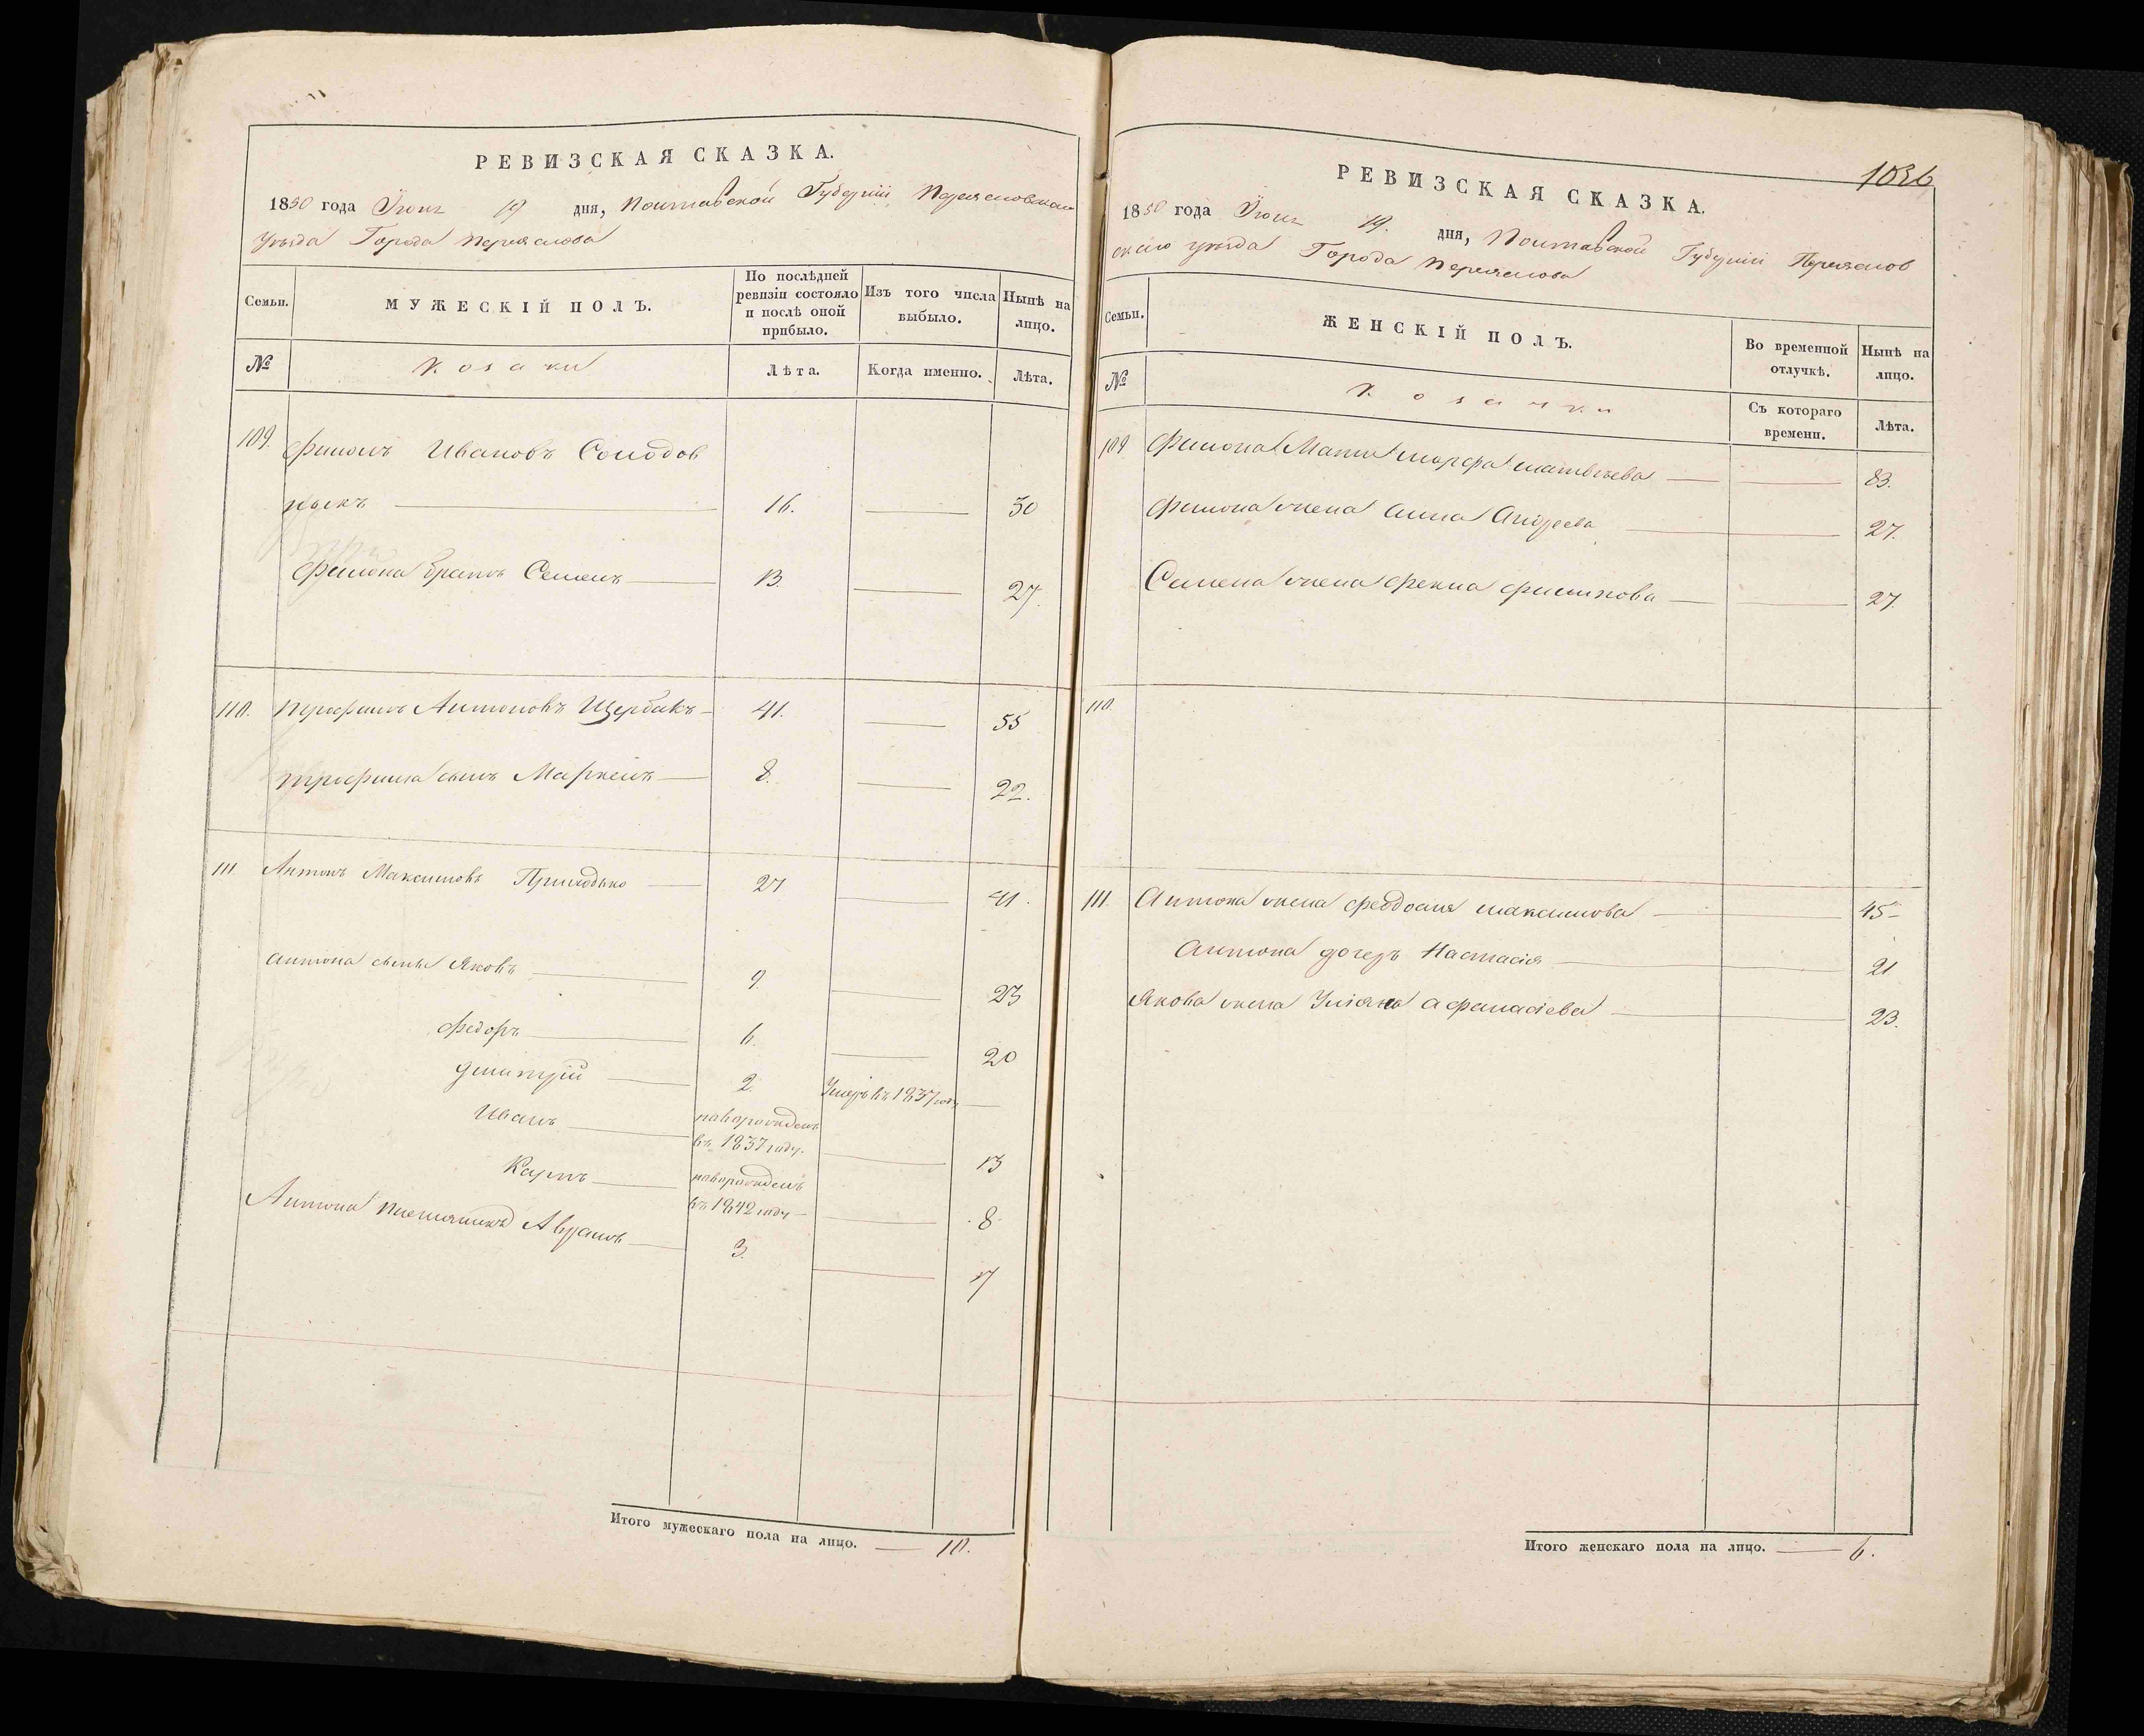 РЕВИЗСКАЯ СКАЗКА.
1850 года Іюня 19 дня, Полтавской Губерніи, Переяславскаго
уезда Города Переяслова
Семьи.
МУЖЕСКІЙ ПОЛЪ.
По послѣдней ревизіи состояло и послѣ оной прибыло.
Изъ того числа выбыло.
Нынѣ на лицо.
№
Козаки
Лѣта.
Когда именно.
Лѣта.
109. Филонъ Ивановъ Солодов
никъ 16. 30
Филона братъ Семенъ 13. 27.
110. Трофимъ Антоновъ Щербакъ 41. 55
Трофима сынъ Маркелъ 8. 22.
111 Антонъ Максимовъ Приходько 27 41.
Антона сынъ Яковъ 9. 23
Федоръ 6. 20
Дмитрій 2. Умеръ въ 1837 году
Иванъ новорожденъ
въ 1837 году. 13
Карпъ новорожденъ
въ 1842 году 8.
Антона племяникъ Аврамъ 3. 17
Итого мужескаго пола на лицо. 10.
1036
РЕВИЗСКАЯ СКАЗКА.
1850 года Іюня 19. дня, Полтавской Губерніи Переяслов
скаго уезда Города Переяслова
Семьи.
ЖЕНСКІЙ ПОЛЪ.
Во временной отлучкѣ.
Нынѣ на лицо.
№
Козачки
Съ котораго времени.
Лѣта.
109 Филона Мать Марфа Матвѣева 83.
Филона жена Анна Андреева 27.
Семена жена Фекла Филипова 27.
110.
111. Антона жена Феодосия Максимова 45
Антона дочерь Настасія 21
Якова жена Уліяна Афанасіева 23.
Итого женскаго пола на лицо. 6.